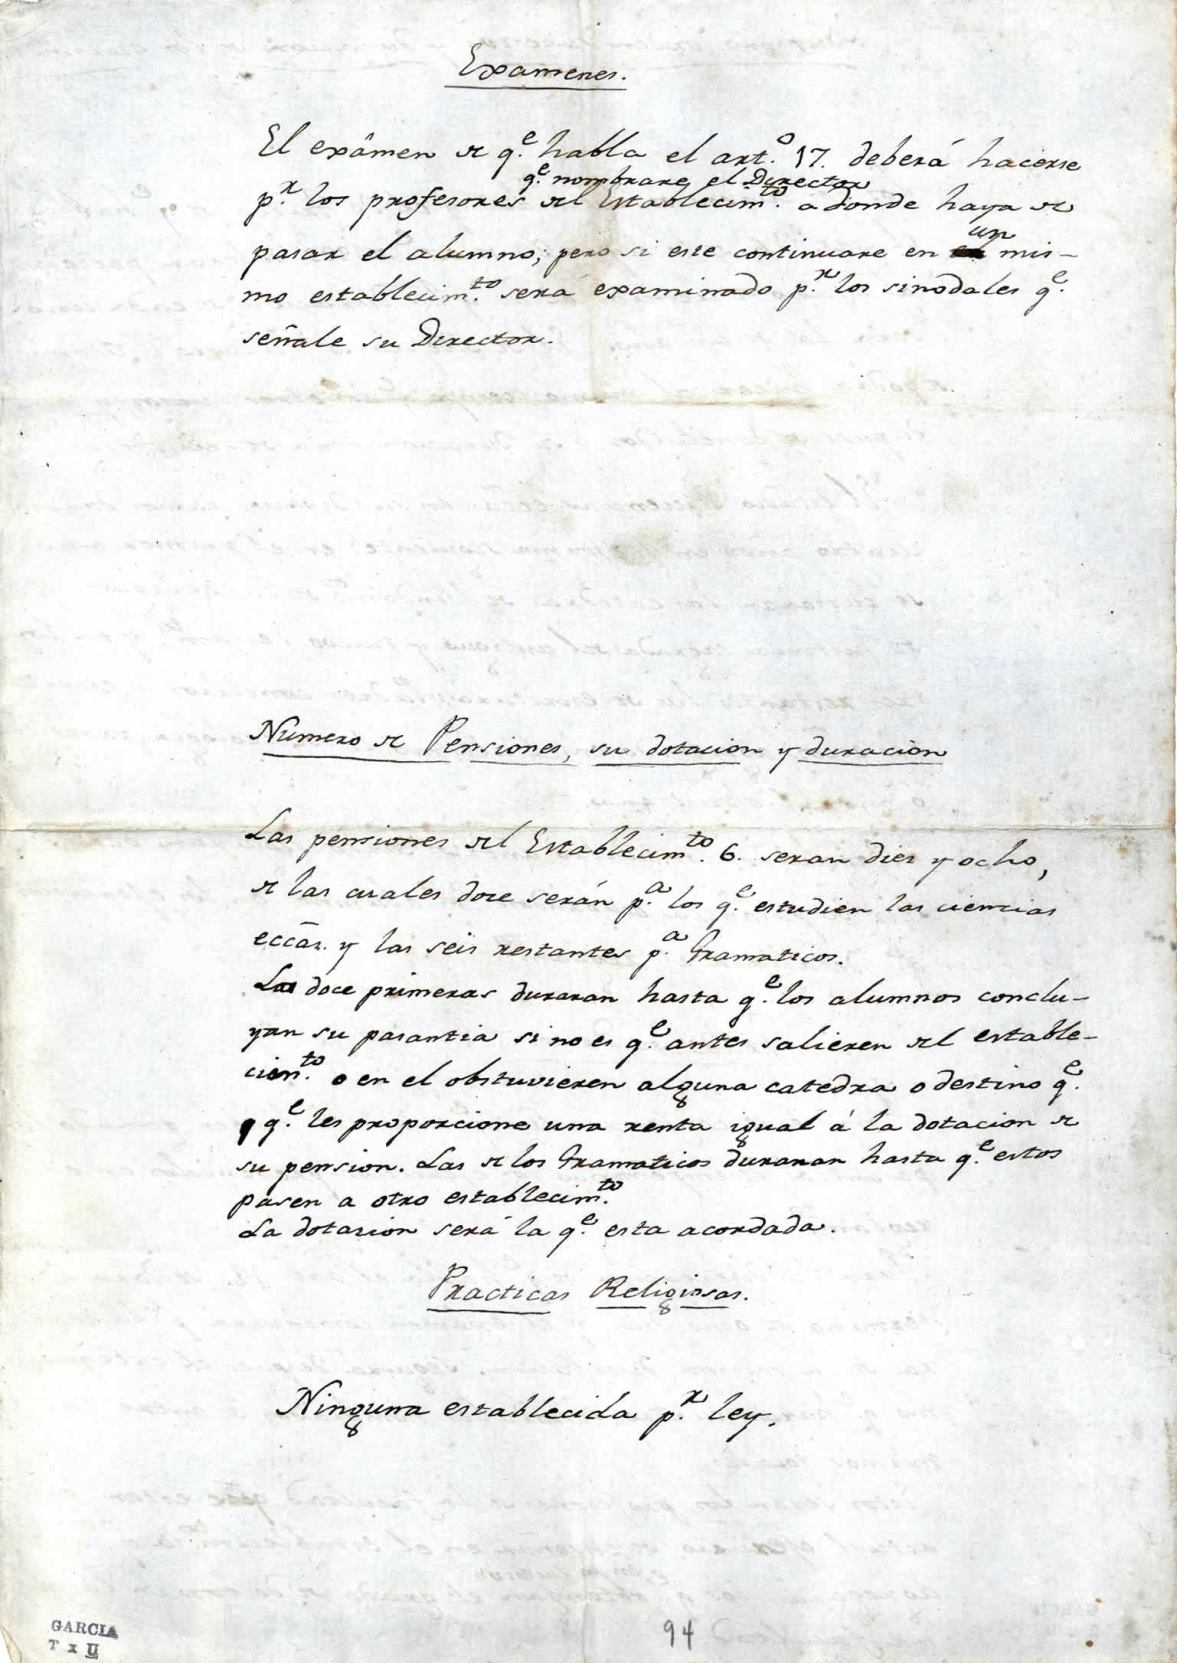 Examenes.
El exâmen de q.e habla el art.o 17. deberá hacerse
q.e nombrare el Director
p.r los profesores del Establecim.to adonde haya de
pasar el alumno; pero si este continuare en un mis-
mo establecim.to será examinado p.r los sinodales q.e
señale su Director.
Numero de Pensiones, su dotacion y duracion
Las pensiones del Establecim.to 6. seran diez y ocho,
de las cuales doce serán p.a los q.e estudien las ciencias
eccãs. y las seis restantes p.a Gramaticos.
Las doce primeras duraran hasta q.e los alumnos conclu-
yan su pasantia si no es q.e antes salieren del estable-
cim.to o en el obstuvieren alguna catedra o destino q.e
q.e les proporcione una renta igual á la dotacion de
su pension. Las de los Gramaticos duraran hasta q.e estos
pasen a otro establecim.to
La dotacion será la q.e esta acordada.
Practicas Religiosas.
Ninguna establecida p.r ley.
GARCIA
T x II
94